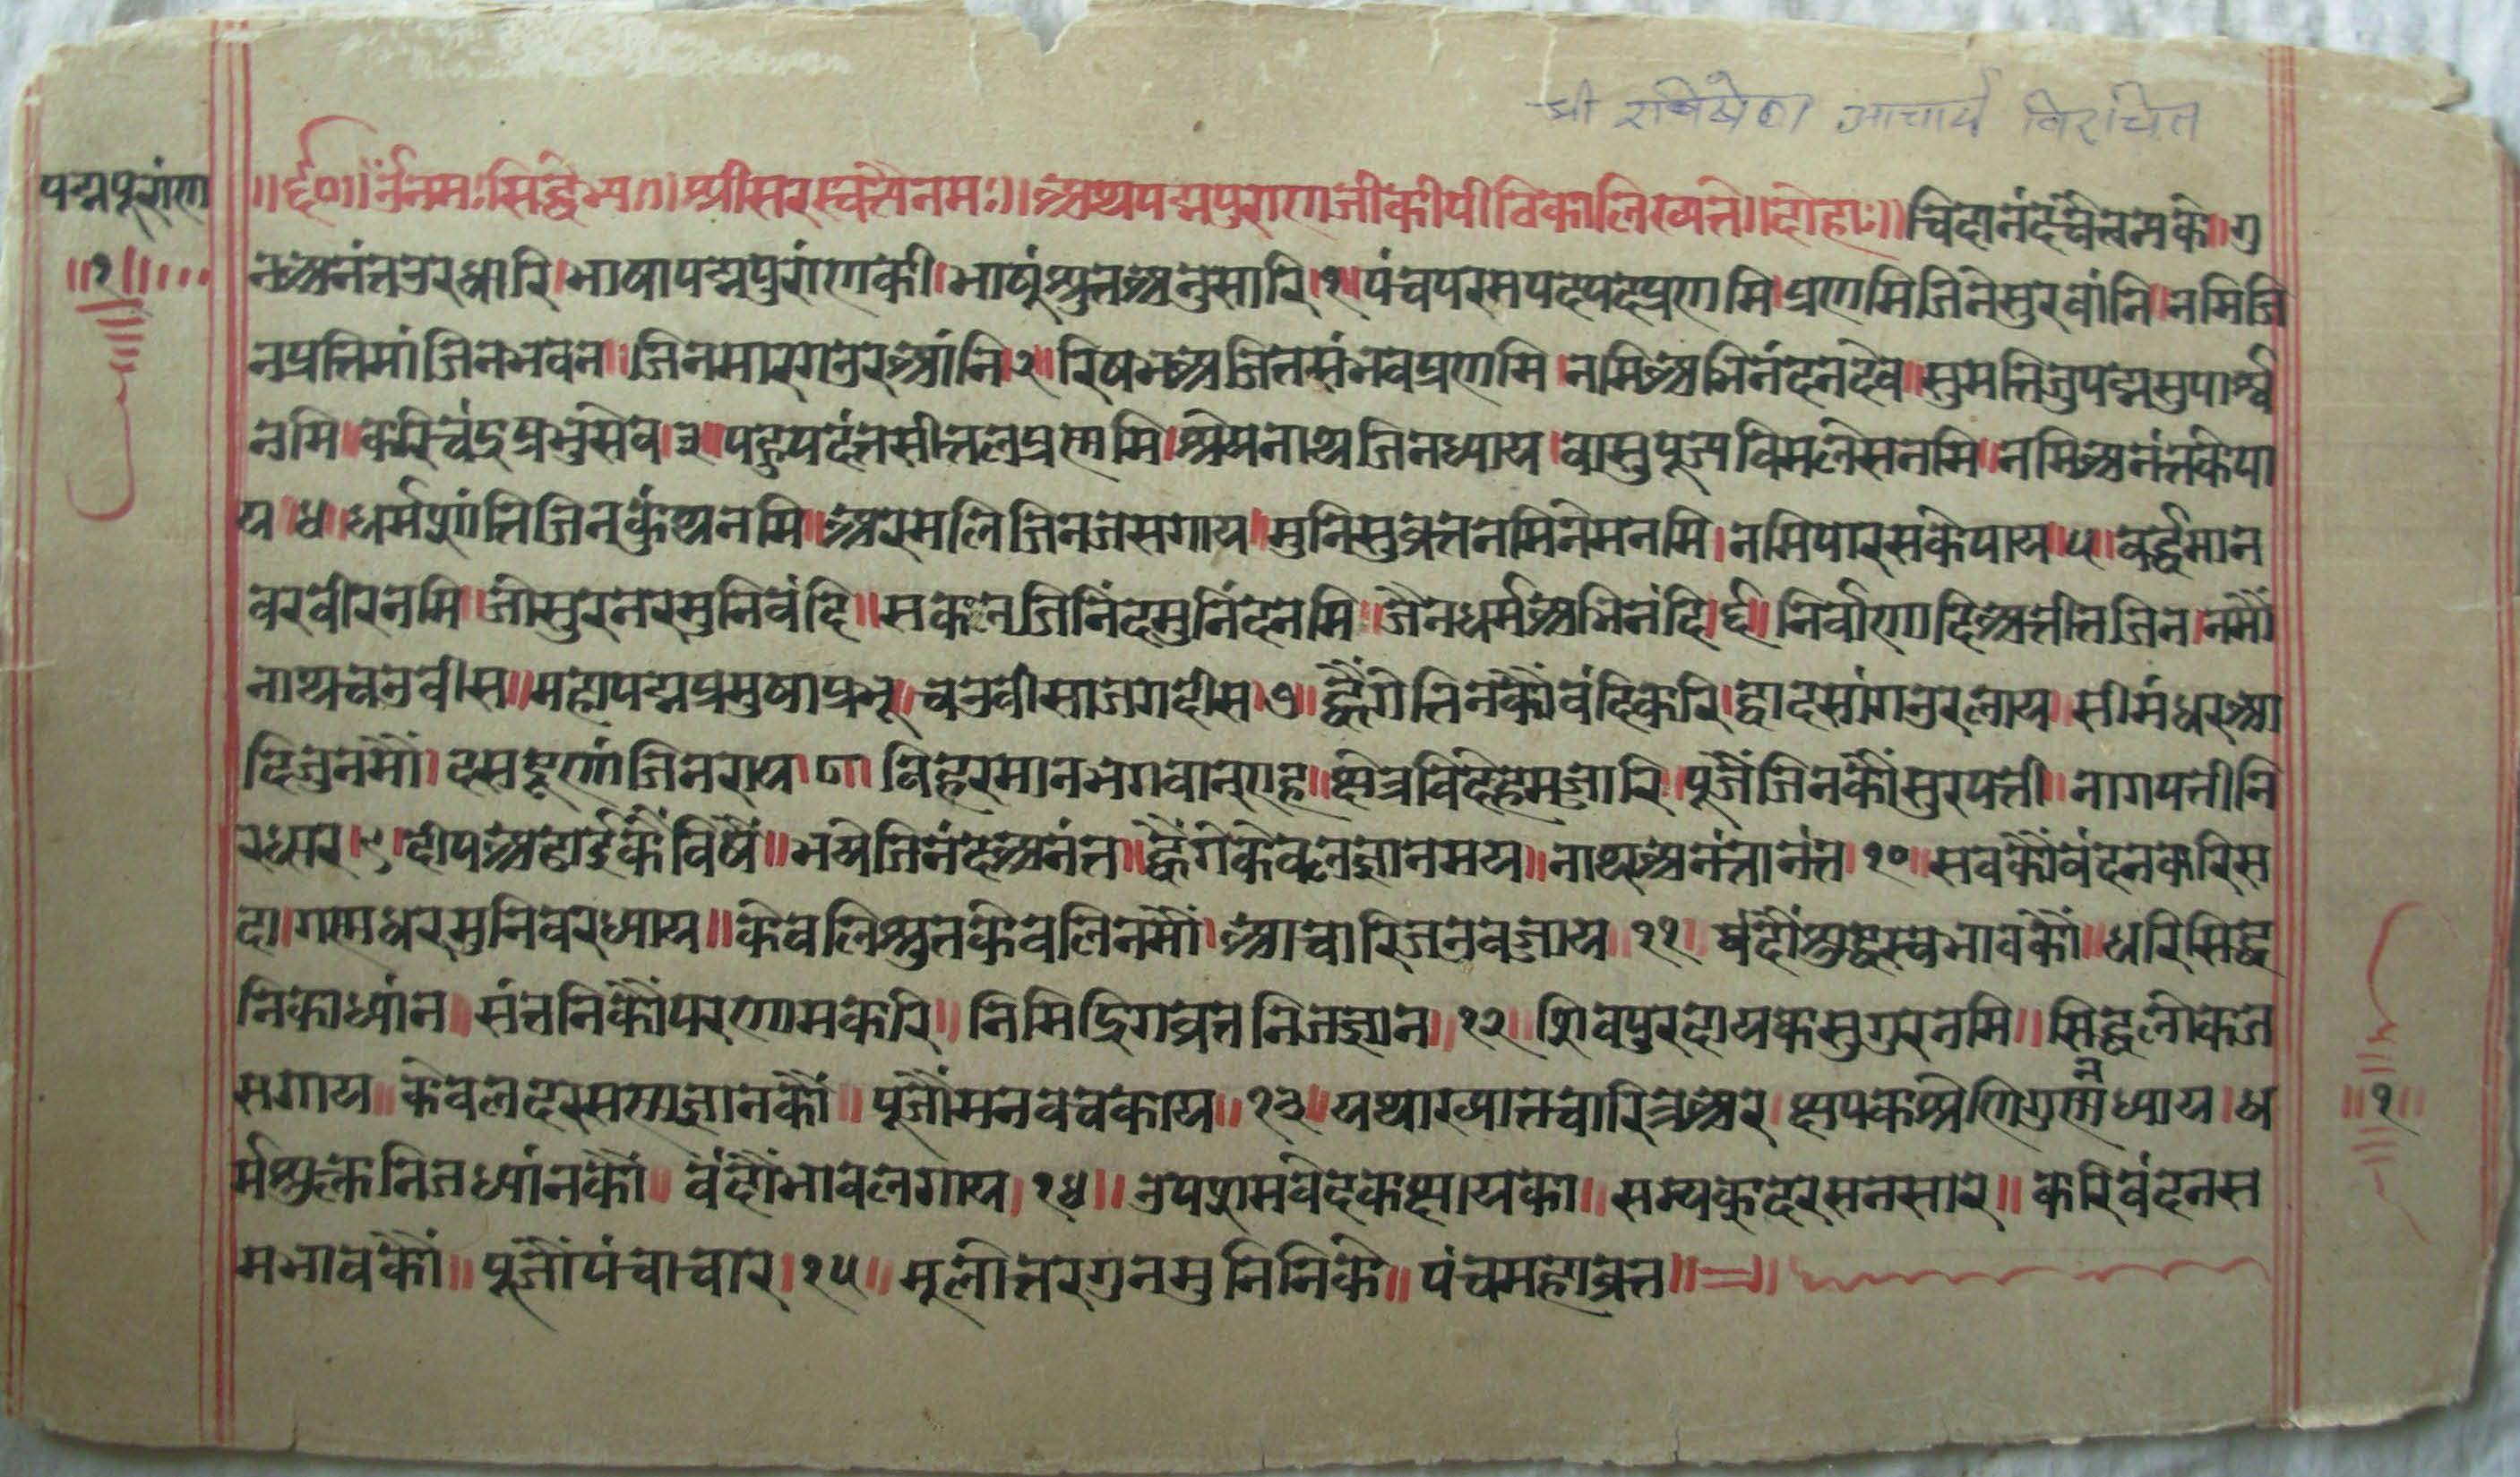 श्री रविषेण आचार्य विरचित
पद्मपुरांण
॥१॥
॥र्द०॥ उंनमःसिद्धेभ्यः॥श्रीसरस्वत्यैनमः॥अथपद्मपुराणजीकीपीठिकालिख्यते॥दोहाः॥चिदानंदचैतन्यके॥गु
नअनंतउरधारि।भाषापद्मपुरांणकी।भाषुंश्रुतअनुसारि।१।पंचपरमपदपदप्रणमि।प्रणमिजिनेसुरवांनि।नमिजि
नप्रतिमांजिनभवन॥जिनमारगउरआंनि२॥रिषभअजितसंभवप्रणमि।नमिअभिनंदनदेव॥सुमतिजुपद्मसुपार्श्व
नमि।करिचंद्रप्रभुसेव।३॥पहुपदंतसीतलप्रणमि।श्रेयनाथजिनध्याय।वासुपूज्यविमलेसनमि।नमिअनंतकेपा
य।४।धर्मशांतिजिनकुंथनमि॥अरमलिजिनजसगाय।मुनिसुव्रतनमिनेमनमि।नमिपारसकेपाय।५॥वर्द्धमान
वरवीरनमि।जोसुरनरमुनिवंदि॥सकलजिनिंदमुनिंदनमि।जैनधर्मअभिनंदि।६॥निर्वाणादिअतीतजिन।नमौं
नाथचउवीस॥महापद्मप्रमुषाप्रभू॥चउवीसाजगदीस।७॥ह्वैंगेतिनकौंवंदिकरि।द्वादसांगउरलाय।सीमंधरआ
दिजुनमौं।दसदूणांजिनराय।८॥विहरमानभगवानएह॥क्षेत्रविदेहमझारि।पूजैंजिनकौंसुरपती॥नागपतीनि
रधार।९।दीपअढाईकैविषैं॥भयेजिनंदअनंत॥ह्वैंगेकेवलज्ञानमय॥नाथअनंतानंत।१०॥सवकौंवंदनकरिस
दा।गणधरमुनिवरध्याय॥केवलिश्रुतकेवलिनमौं।आचारिजउवझाय।११।वंदौंशुद्धस्वभावकौं॥धरिसिद्ध
निकाध्यांन।संतनिकौंपरणामकरि।नमिद्रिगव्रतनिजज्ञान।१२॥शिवपुरदायकसुगुरनमि॥सिद्धलोकज
सगाय॥केवलदरसणज्ञानकौं॥पूजौंमनवचकाय॥१३।यथाख्यातचारित्रअर।क्षपकश्रेणिगुणनध्याय।ध
र्मशुक्लनिजध्यांनकौं॥वंदौंभावलगाय।१४॥उपशमवेदकक्षायका॥सम्यकदरसनसार॥करिवंदनस
मभावकौं॥पूजौंपंचाचार।१५॥मूलोत्तरगुनमुनिनिके॥पंचमहाव्रत॥
॥१॥